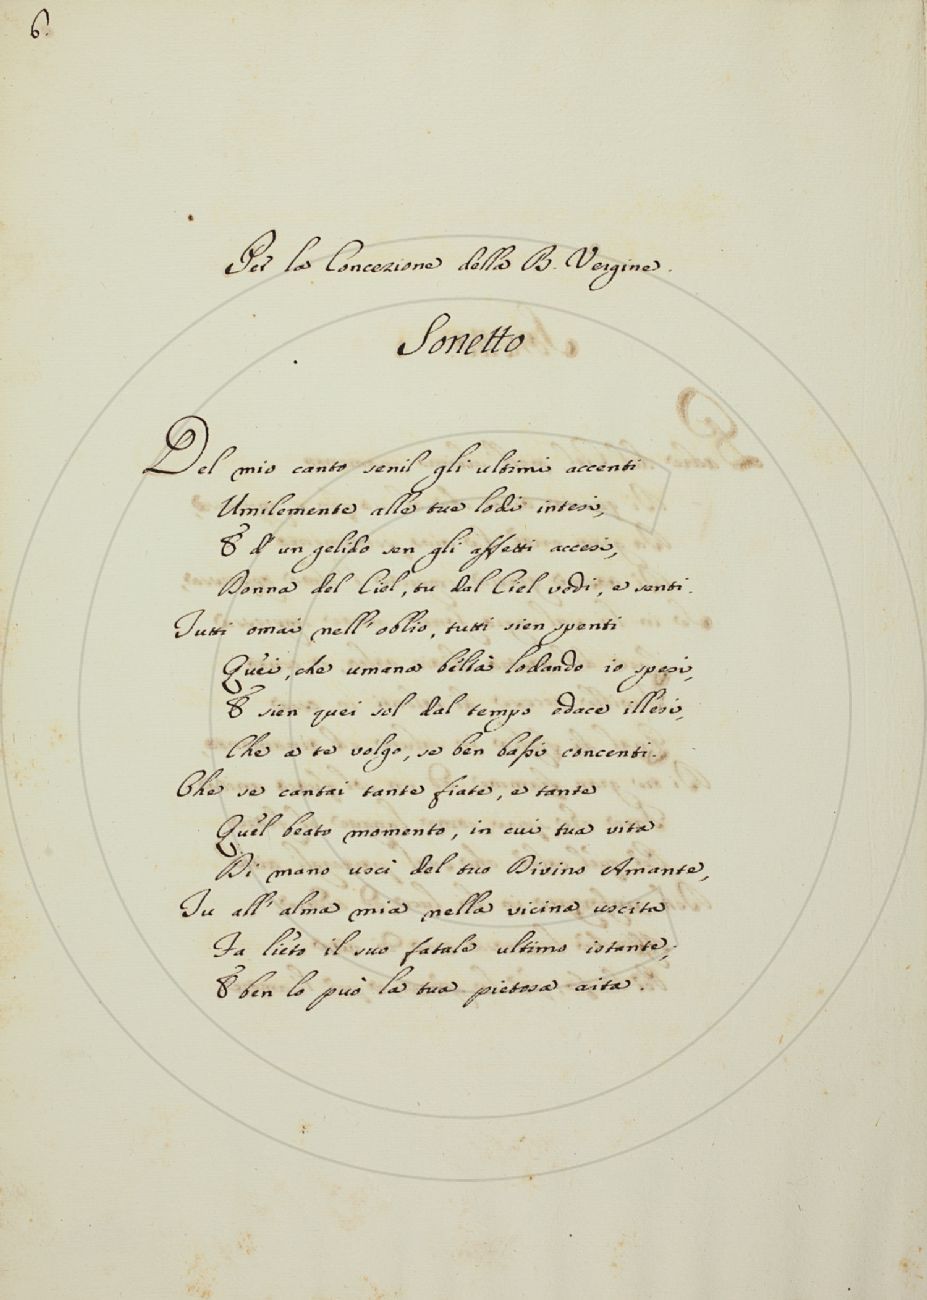 6.
Per la Concezione della B. Vergine.
Sonetto
Del mio canto senil gli ultimi accenti
Umilemente alle tue lodi intesi,
E d'un gelido sen gli affetti accesi,
Donna del Ciel, tu dal Ciel vedi, e senti.
Tutti omai nell'oblio, tutti sien spenti
Quei, che umana beltà lodando io spesi,
E sien quei sol dal tempo edace illesi,
Che a te volgo, se ben bassi concenti.
Che se cantai tante fiate, e tante
Quel beato momento, in cui tua vita
Di mano uscì del tuo Divino Amante,
Tu all'alma mia nella vicina uscita
Fa lieto il suo fatale ultimo istante;
E ben lo può la tua pietosa aita.